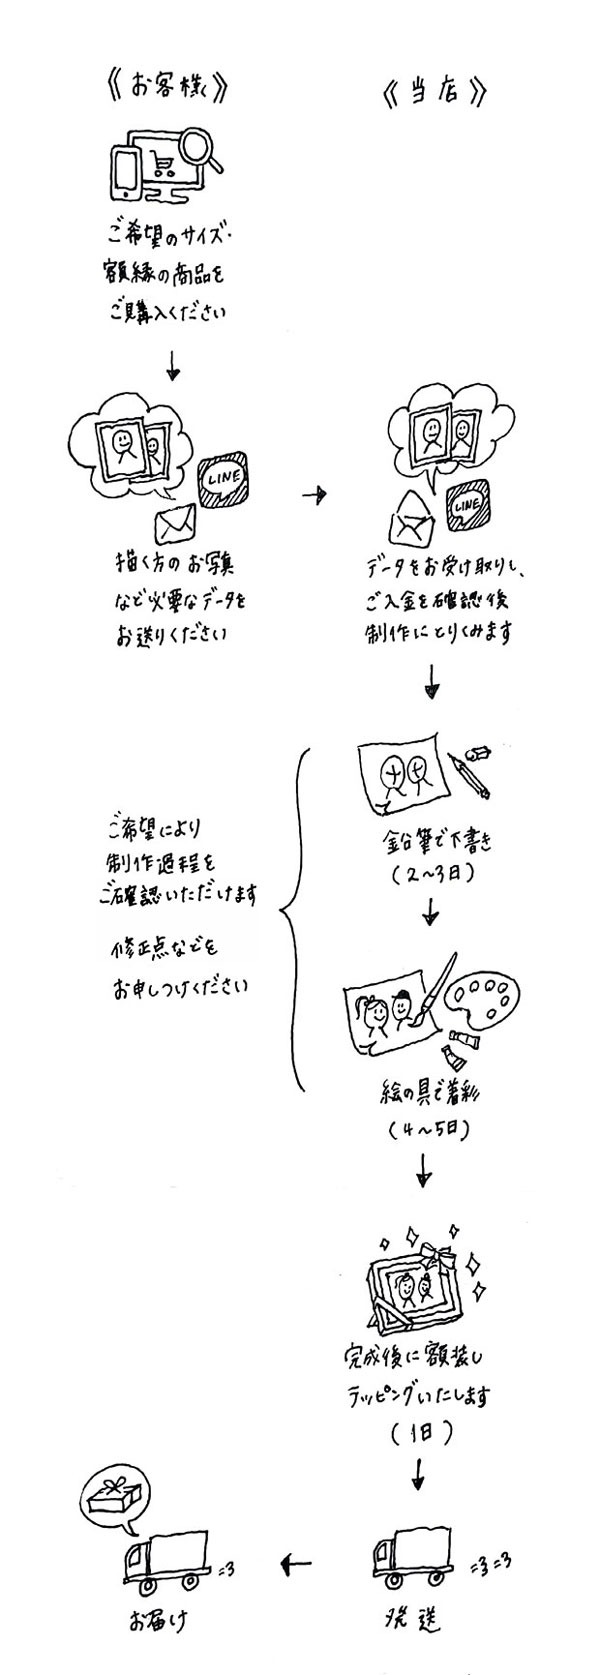 《お客様》
《当店》
ご希望のサイズ・
額縁の商品を
ご購入ください
LINE
描く方のお写真
など必要なデータを
お送りください
LINE
データをお受け取りし、
ご入金を確認後
制作にとりくみます
鉛筆で下書き
(2〜3日)
ご希望により
制作過程を
ご確認いただけます
修正点などを
お申しつけください
絵の具で着彩
(4〜5日)
完成後に額装し
ラッピングいたします
(1日)
発送
お届け